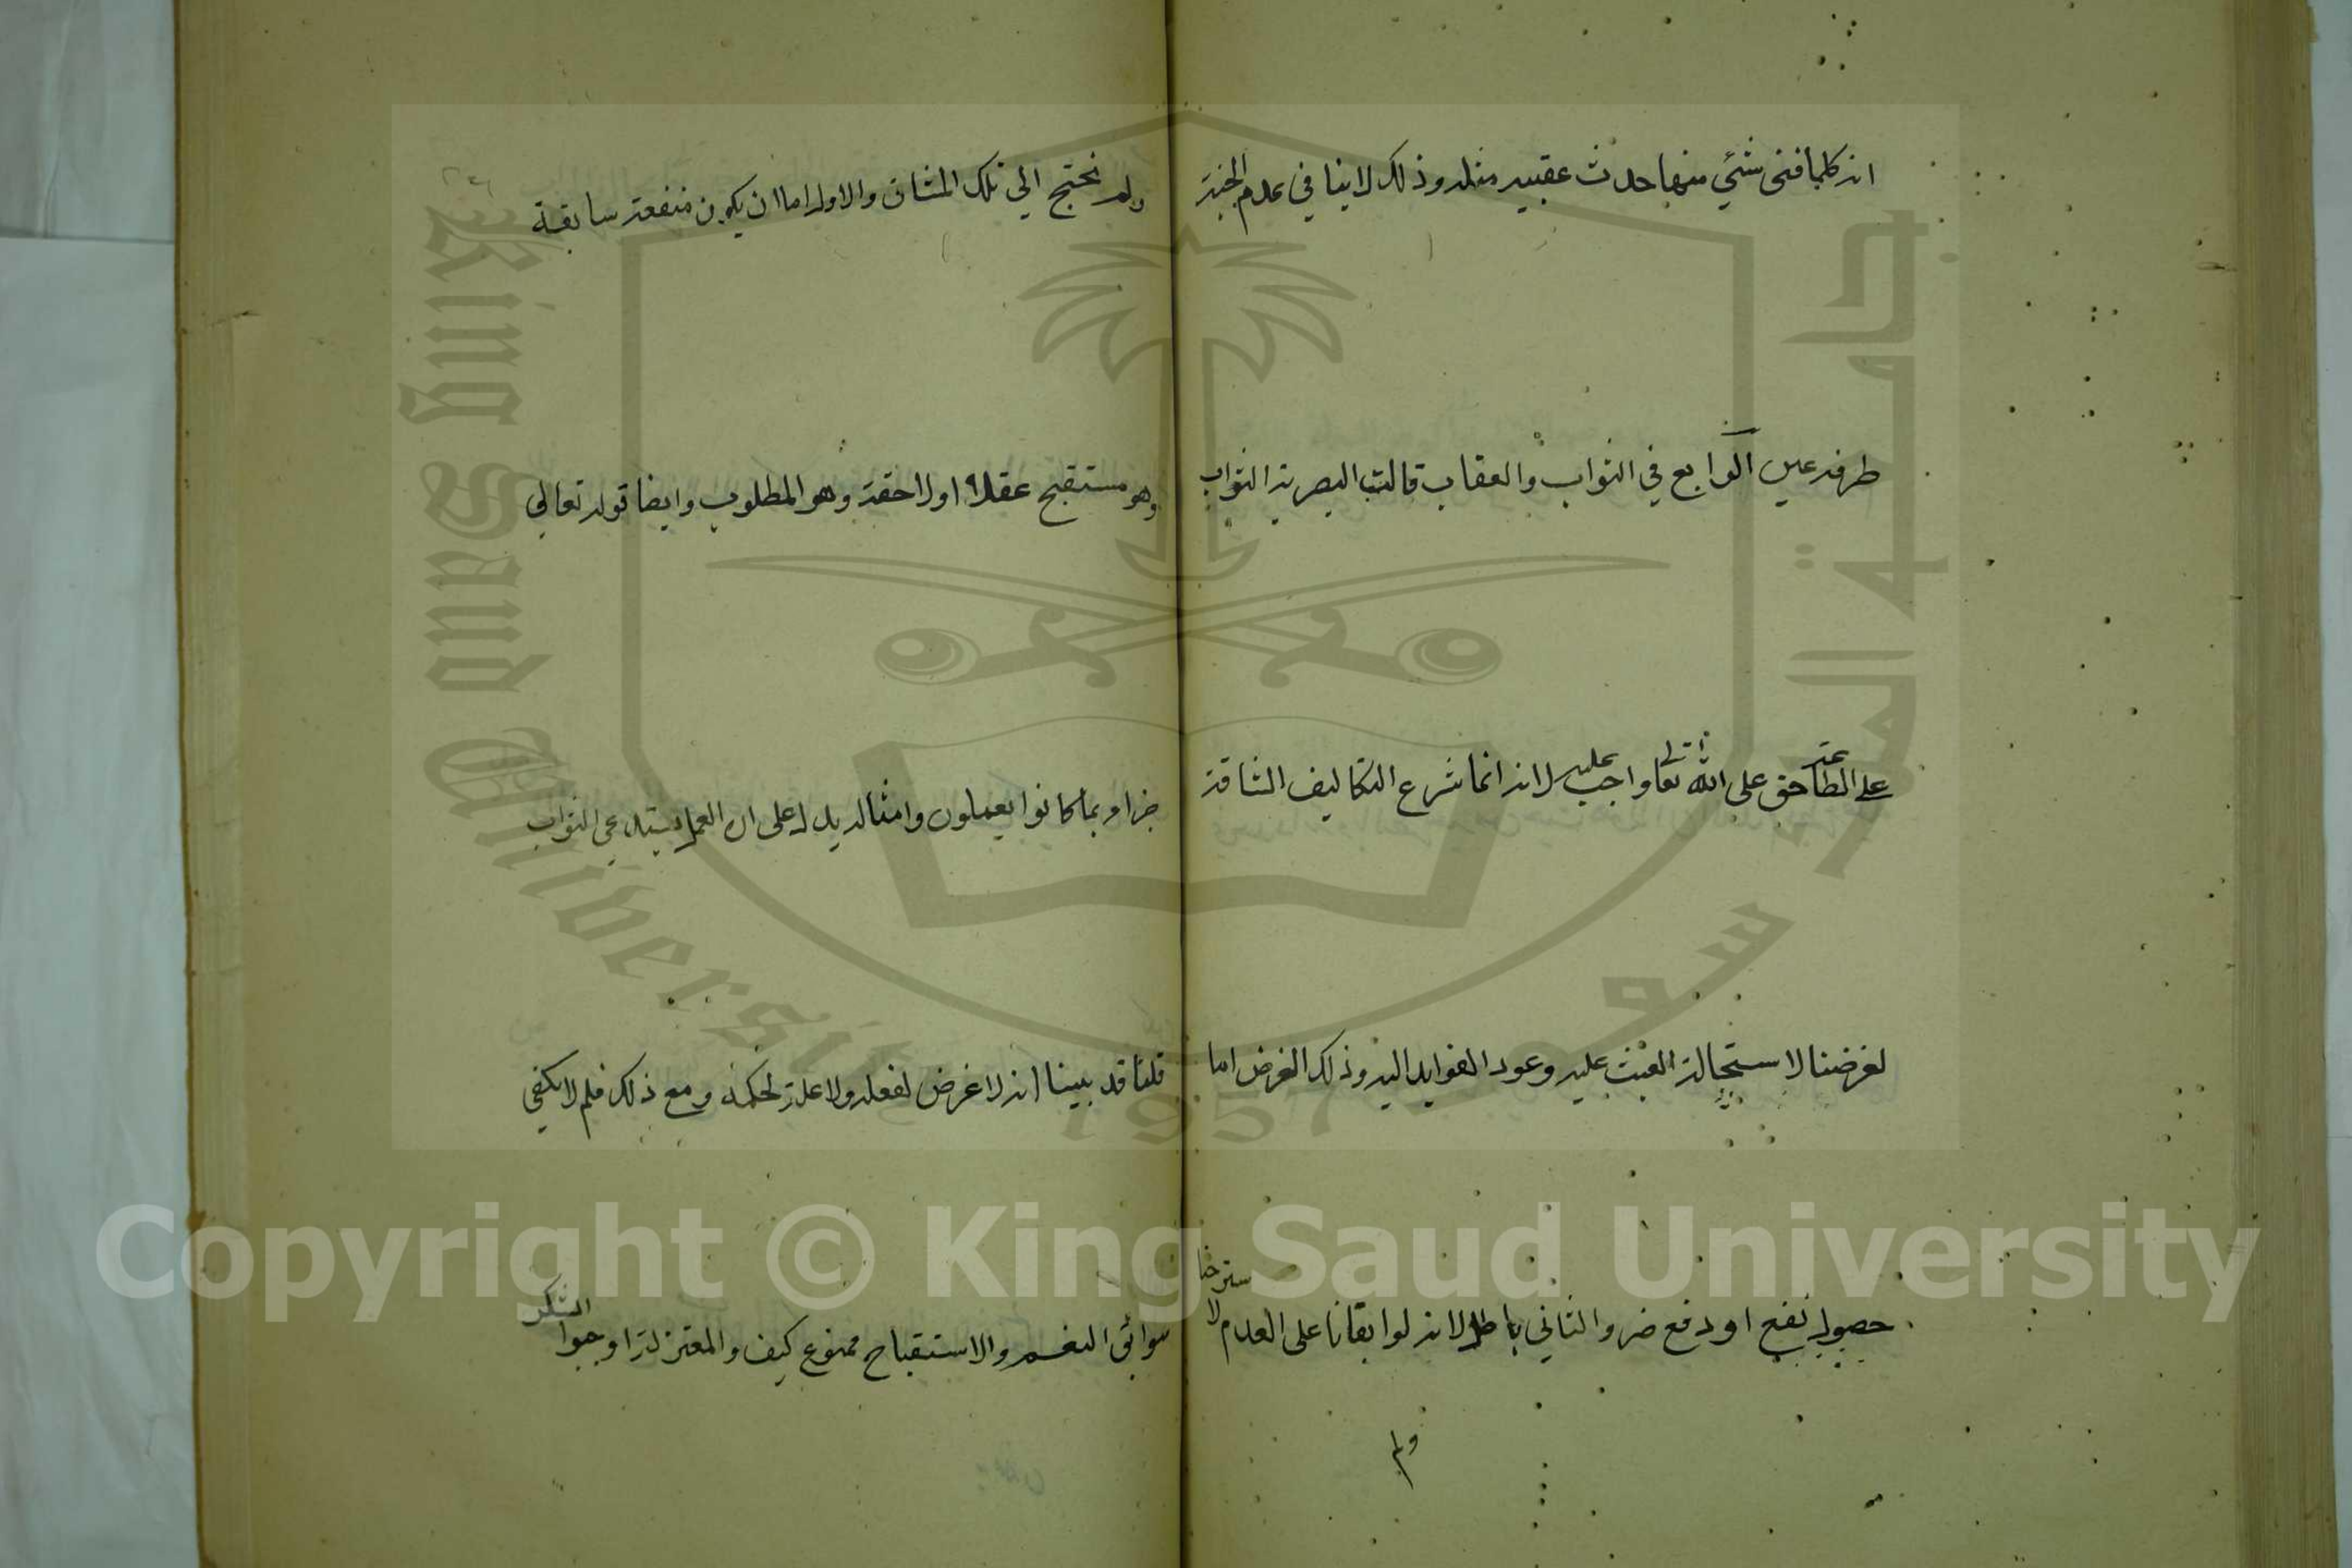 انه كلما فنى شئي منها حدث عقبيه مثله وذلك لا ينافي عدم الجنة
طرفة عين الرابع في الثواب والعقاب قالت البصرية الثواب
على الطاعة حق على الله تعالى واجب عليه لانه انما شرع التكاليف الشاقة
لغرضنا لاستحالة العبث عليه وعود الفوايد اليه وذلك الغرض اما
حصول نفع او دفع ضر والثاني باطل لانه لو ابقانا على العدم لاسترحنا
ولم
ولم نحتج الي تلك المشاق والاول اما ان يكون منفعة سابقة
وهو مستقبح عقلا او لاحقة وهو المطلوب وايضا قوله تعالي
جزاء بما كانوا يعملون وامثاله يدل على ان العمل يستدعي الثواب
قلنا قد بينا انه لا غرض لفعله ولا علة لحكمه ومع ذلك فلم لا يكفي
سوابق النعم والاستقباح ممنوع كيف والمعتزلة اوجبوا الشكر
King Saud University
جامعة الملك سعود
1957
Copyright © King Saud University